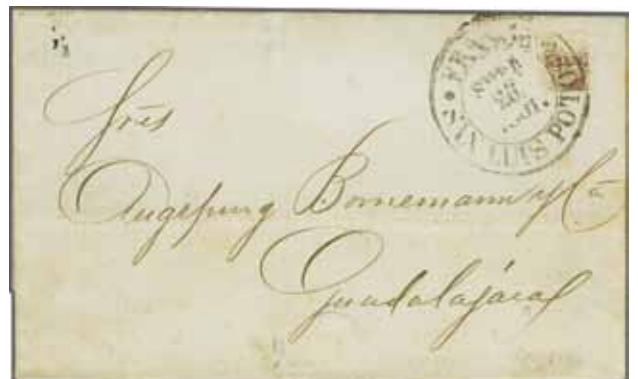 FRANCO
28
SAN LUIS POTO
Sres
Augspurg Bornemann y Ca
Guadalajara